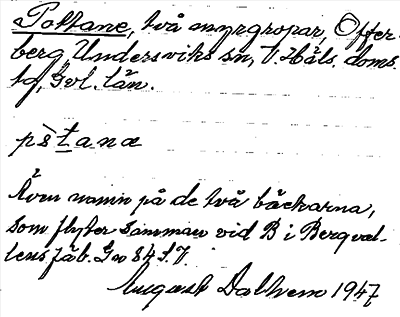 Pottane, två myrgropar, Offer-
berg, Undersviks sn, V. Häls. doms.
tg, Gvl. län.
pštana
Även namn på de två bäckarna,
som flyter samman vid B i Bergval-
lens fäb. Gn 84 S.V.
August Dalhem 1947